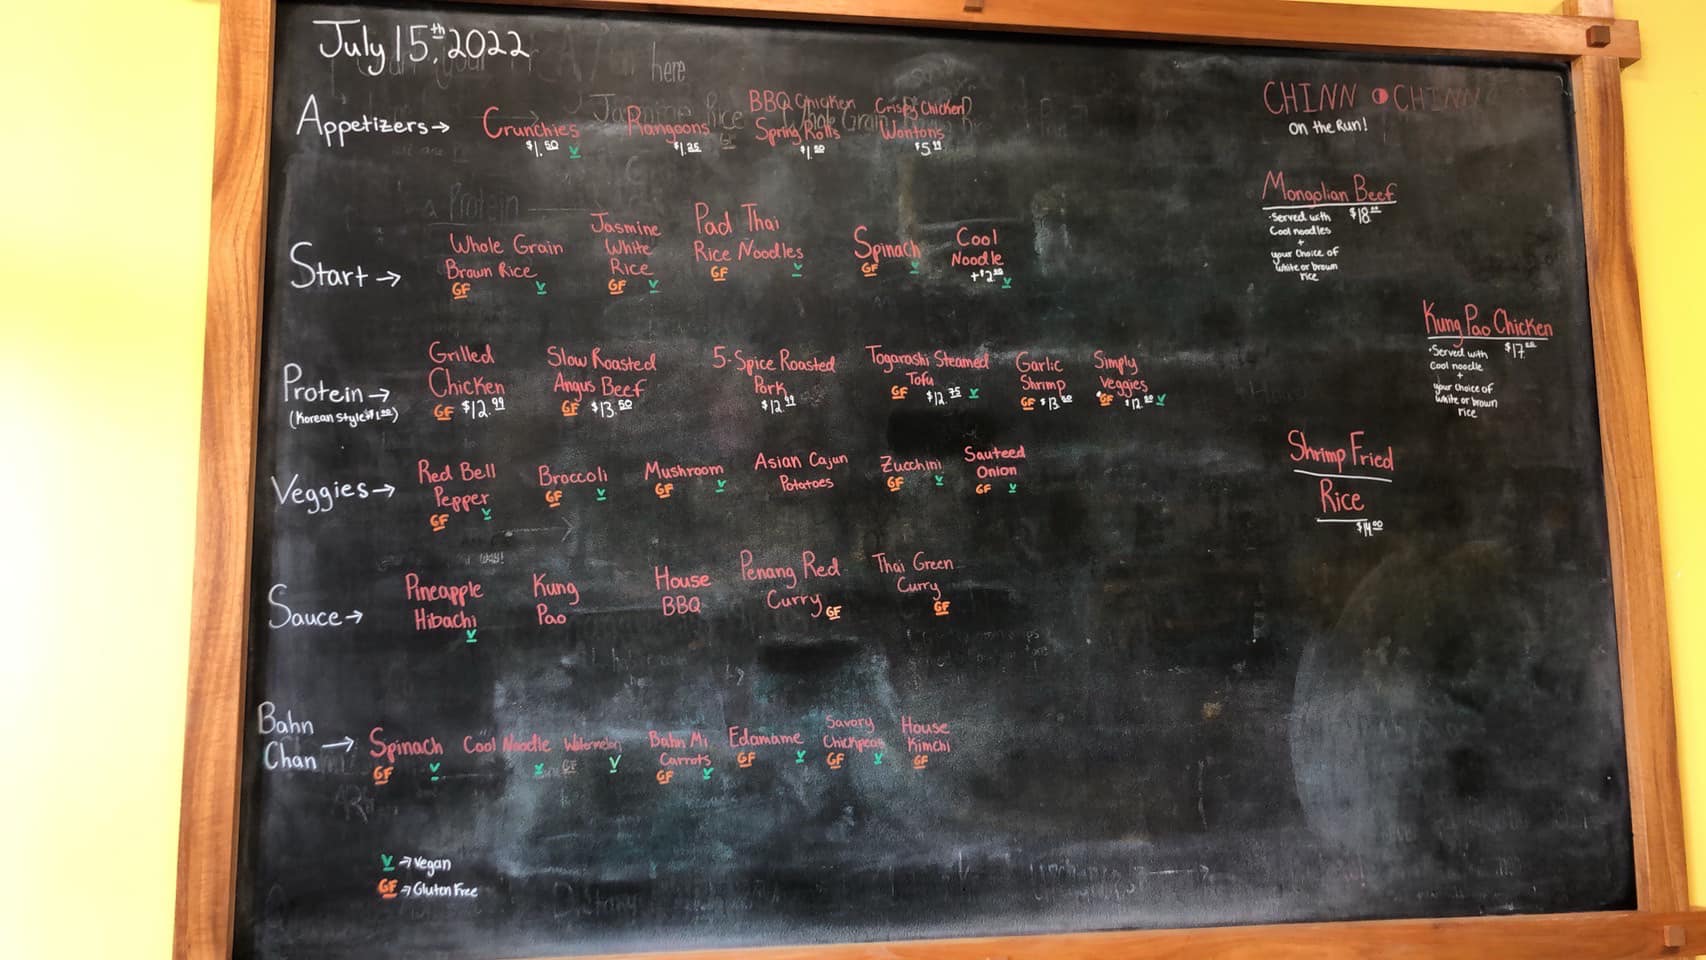 July 15th, 2022
Appetizers →
Crunchies
$1.50 V
Rangoons
$1.25
BBQ Chicken
Spring Rolls
$1.50
Crispy Chicken
Wontons
$5.99
Start →
Whole Grain
Brown Rice
GF V
Jasmine
White
Rice
GF V
Pad Thai
Rice Noodles
GF V
Spinach
GF V
Cool
Noodle
+$2.00
V
Protein →
(Korean Style $1.00)
Grilled
Chicken
GF $12.99
Slow Roasted
Angus Beef
GF $13.50
5-Spice Roasted
Pork
$12.99
Togarashi Steamed
Tofu
GF $12.75 V
Garlic
Shrimp
GF $13.50
Simply
Veggies
GF $12.00 V
Veggies →
Red Bell
Pepper
GF V
Broccoli
GF V
Mushroom
GF V
Asian Cajun
Potatoes
Zucchini
GF V
Sauteed
Onion
GF V
Sauce →
Pineapple
Hibachi
V
Kung
Pao
House
BBQ
Penang Red
Curry GF
Thai Green
Curry
GF
Bahn
Chan →
Spinach
GF V
Cool Noodle
V
Watermelon
GF V
Bahn Mi
Carrots
GF V
Edamame
GF V
Savory
Chickpeas
GF V
House
Kimchi
GF
V → Vegan
GF → Gluten Free
CHINN CHINN
on the Run!
Mongolian Beef
·Served with $18.00
Cool noodles
+
your Choice of
white or brown
rice
Kung Pao Chicken
·Served with $17.00
Cool noodle
+
your Choice of
white or brown
rice
Shrimp Fried
Rice
$14.00
here
Jasmine Rice
Whole Grain
Protein